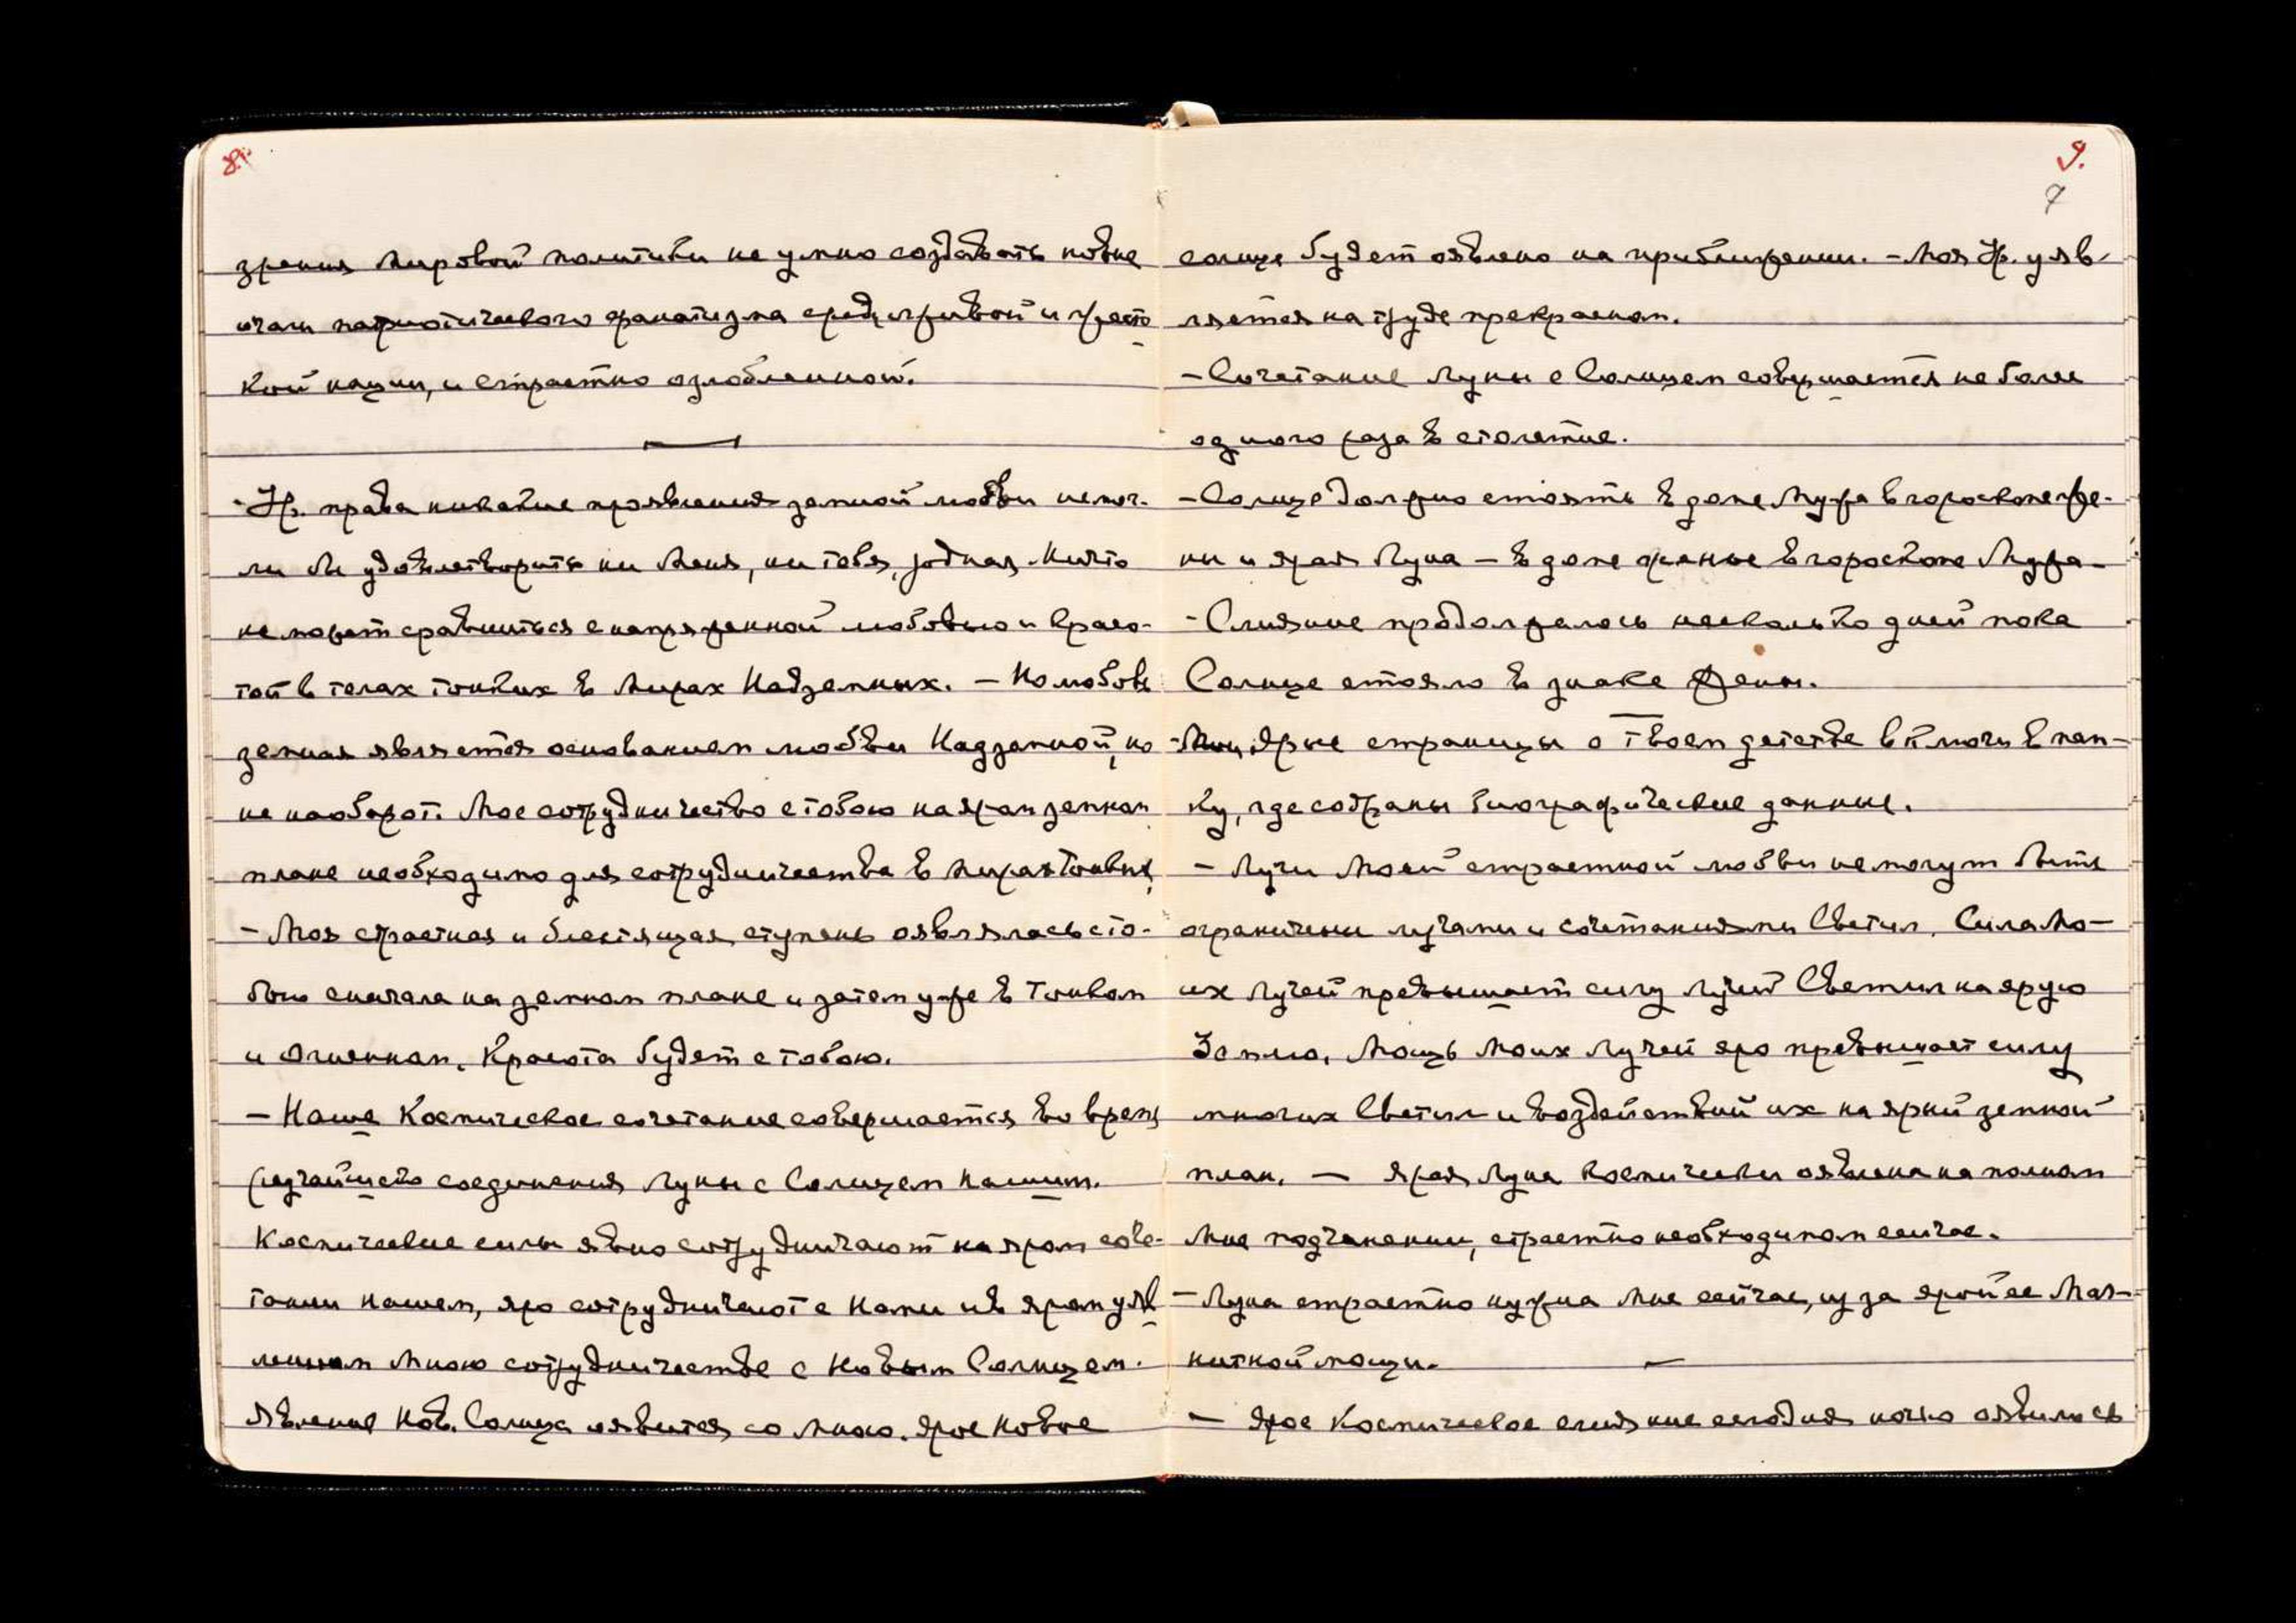 8.
зрения Мировой политики не умно создавать новые
очаги патриотического фанатизма среди лживой и жесто
кой нации, и страстно озлобленной.
- Ур. права никакие проявления земной любви не мог-
ли бы удовлетворить ни Меня, ни тебя, родная. Ничто
не может сравниться с напряженной любовью и красо-
той в телах тонких в Мирах Надземных. - Но любовь
земная является основанием любви Надземной, но
не наоборот. Мое сотрудничество с тобою на яром земном
плане необходимо для сотрудничества в Мирах Тонких,
- Моя страстная и блестящая ступень оявлялась с то-
бою сначала на земном плане и затем уже в Тонком
и Огненном. Красота будет с тобою.
- Наше Космическое сочетание совершается во время
редчайшего соединения Луны с Солнцем Нашим.
Космические силы явно сотрудничают на яром соче-
тании нашем, яро сотрудничают с Нами и в яром уяв
ленном Мною сотрудничестве с Новым Солнцем.
Явление Нов. Солнца оявится со Мною. Ярое Новое
9.
7
солнце будет оявлено на приближении. - Моя Ур. уяв-
ляется на труде прекрасном.
- Сочетание Луны с Солнцем совершается не более
одного раза в столетие.
- Солнце должно стоять в доме Мужа в гороскопе же-
ны и ярая Луна - в доме жены в гороскопе Мужа -
- Слияние продолжалось несколько дней пока
Солнце стояло в знаке Жены.
- ярые страницы о Твоем детстве включи в пап-
ку, где собраны биографические данные.
- Лучи Моей страстной любви не могут быть
ограничены лучами и сочетаниями Светил. Сила Мо-
их Лучей превышает силу лучей Светил на ярую
Землю. Мощь Моих Лучей яро превышает силу
многих Светил и воздействий их на ярый земной
план. - Ярая Луна Космически оявлена на полном
Мне подчинении, страстно необходимом сейчас.
- Луна страстно нужна Мне сейчас, из за ярой ее Маг-
нитной мощи.
- Ярое Космическое слияние сегодня ночью оявилось